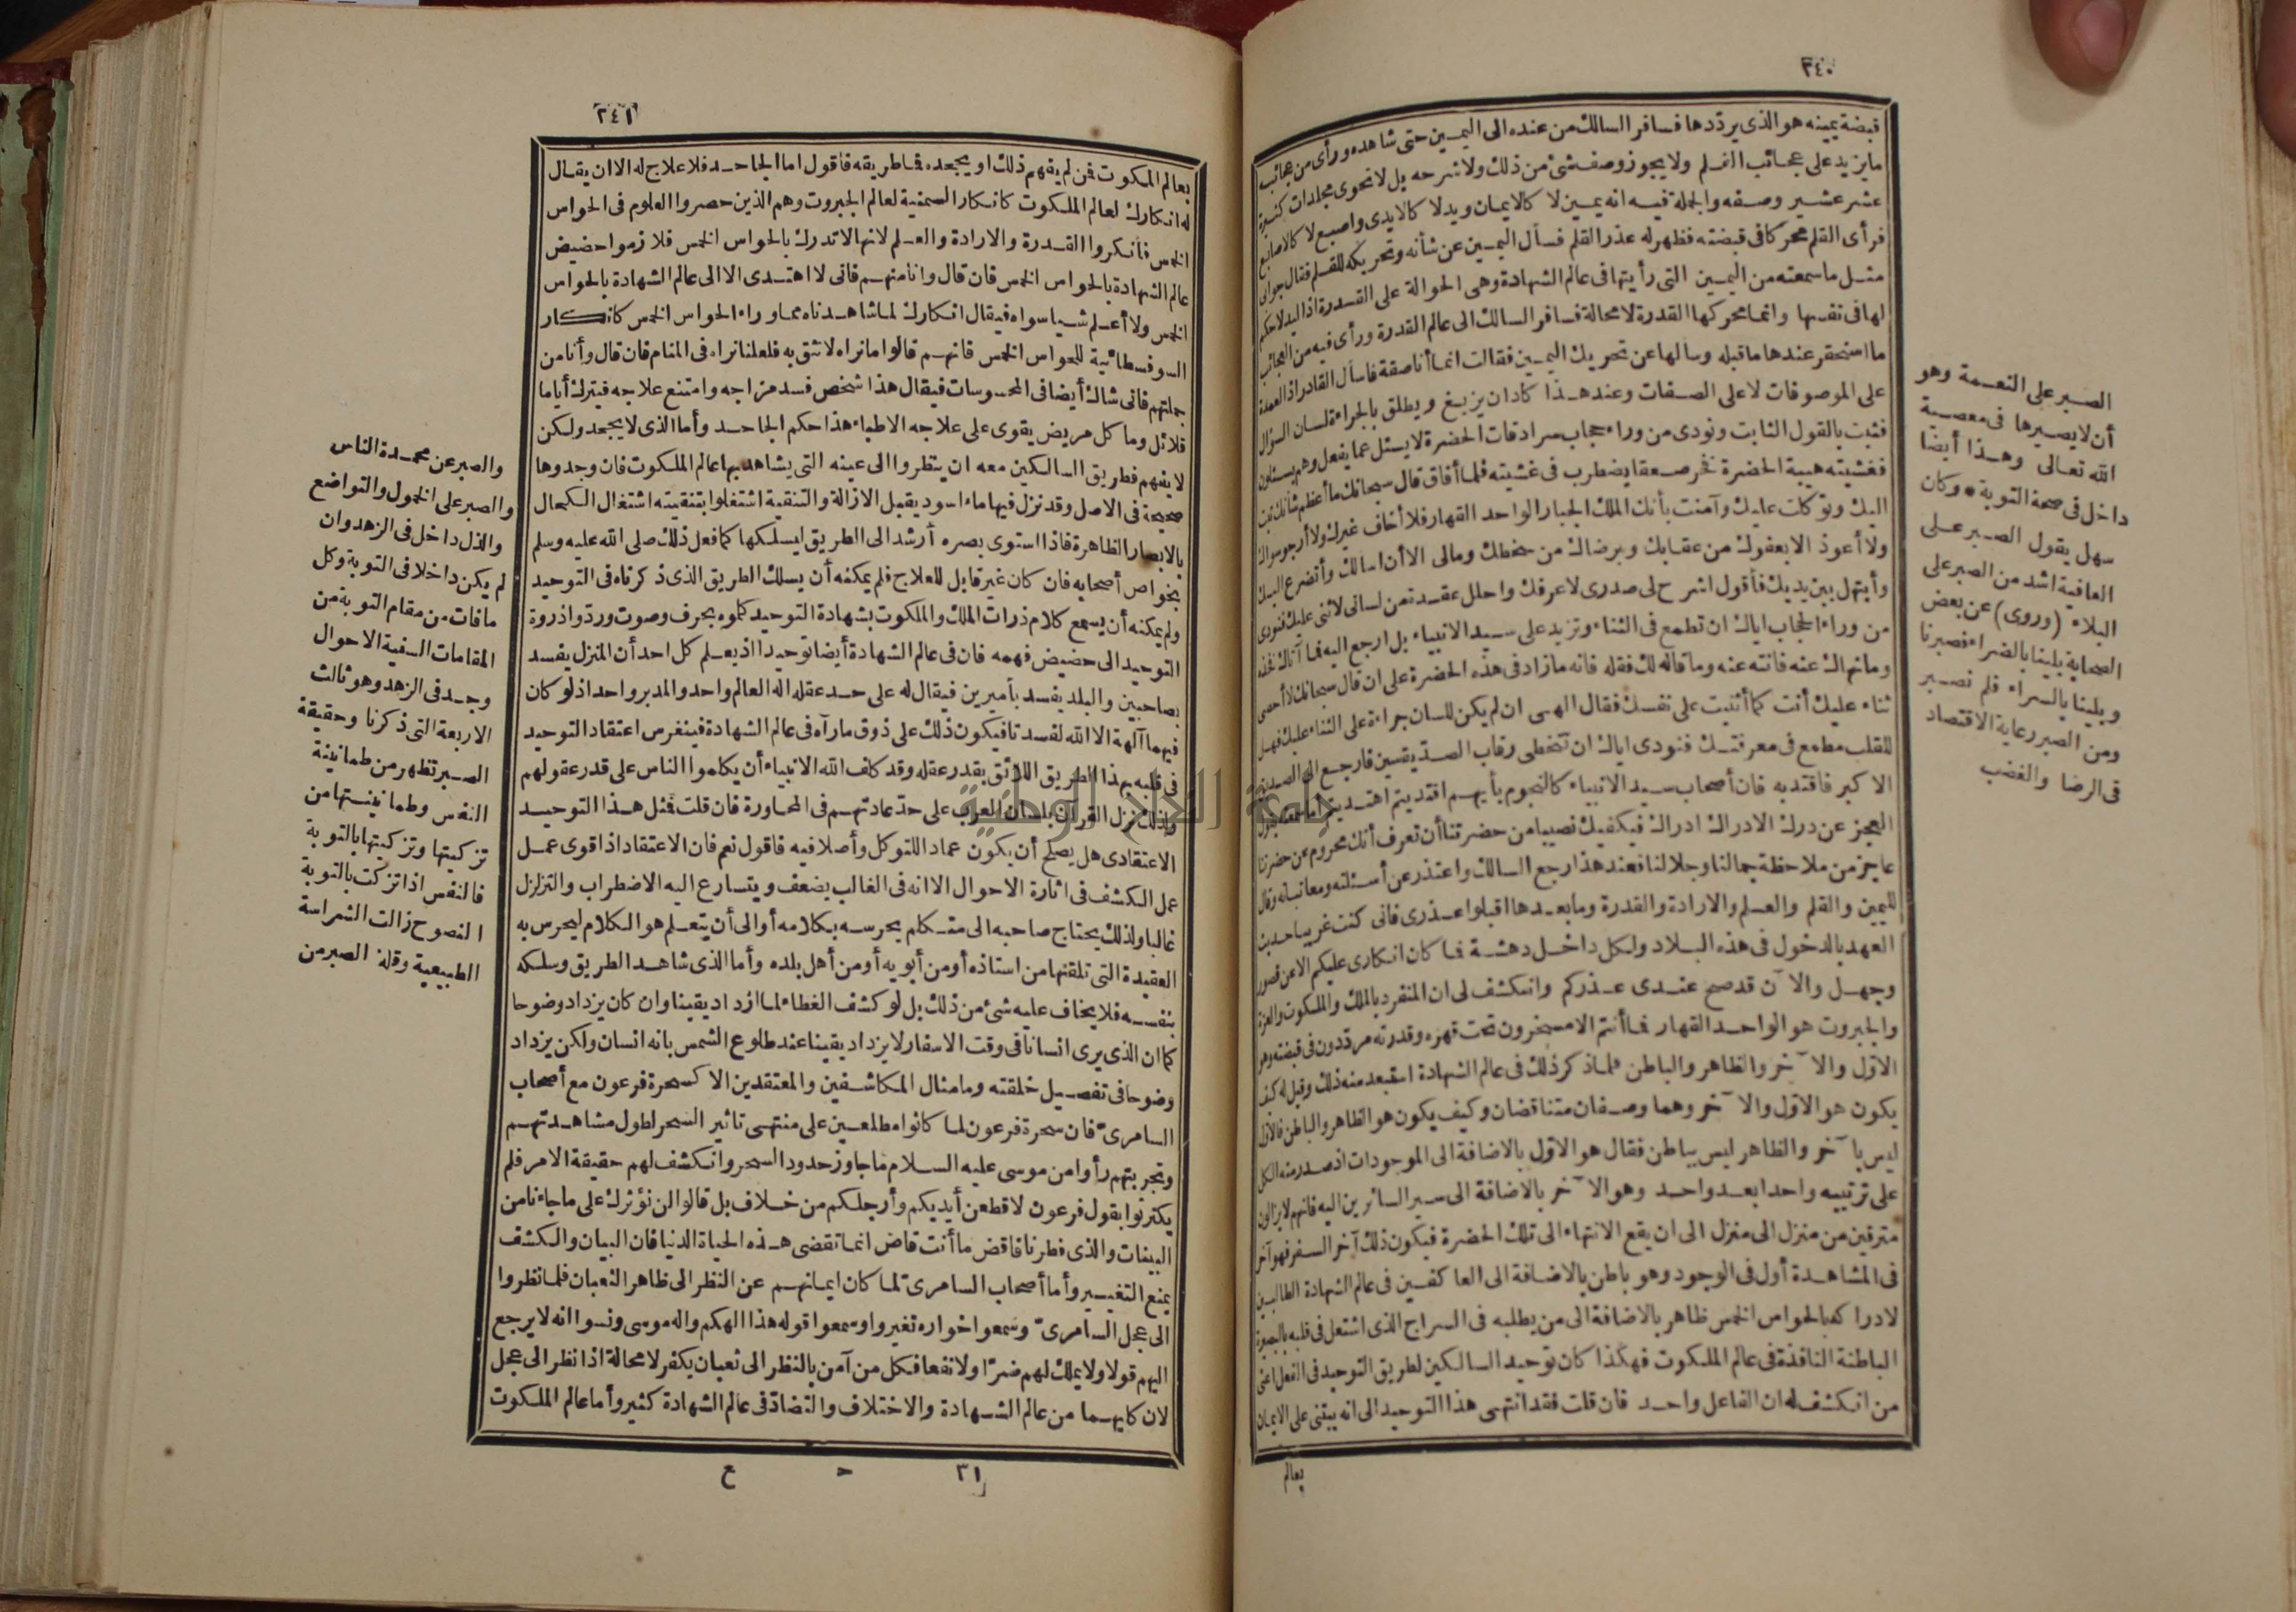 ٢٤٠
قبضة يمينه هو الذى يردّدها فسافر السالك من عنده الى اليمين حتى شاهده ورأى من عجائبه
ما يزيد على عجائب القلم ولا يجوز وصف شئ من ذلك ولا شرحه بل لا تحوى مجلدات كثيرة
عشر عشير وصفه والجملة فيه انه يمين لا كالايمان ويد لا كالايدى واصبع لا كالاصابع
فرأى القلم محركا فى قبضته فظهر له عذر القلم فسأل اليمين عن شأنه وتحريكه للقلم فقال جوابى
مثل ما سمعته من اليمين التى رأيتها فى عالم الشهادة وهى الحوالة على القدرة اذ اليد لا حكم
لها فى نفسها وانما محركها القدرة لا محالة فسافر السالك الى عالم القدرة ورأى فيه من العجائب
ما استحقر عندها ما قبله وسألها عن تحريك اليمين فقالت انما أنا صفة فاسأل القادر اذ العمدة
على الموصوفات لا على الصفات وعند هذا كاد ان يزيغ ويطلق بالجراءة لسان السؤال
فثبت بالقول الثابت ونودى من وراء حجاب سرادقات الحضرة لا يسئل عما يفعل وهم يسئلون
فغشيته هيبة الحضرة فخر صعقا يضطرب فى غشيته فلما أفاق قال سبحانك ما أعظم شأنك تبت
اليك وتوكلت عليك وآمنت بأنك الملك الجبار الواحد القهار فلا أخاف غيرك ولا أرجو سواك
ولا أعوذ الا بعفوك من عقابك وبرضاك من سخطك ومالى الا أن اسالك وأتضرع اليك
وأبتهل بين يديك فأقول اشرح لى صدرى لاعرفك واحلل عقدة من لسانى لاثنى عليك فنودى
من وراء الحجاب اياك ان تطمع فى الثناء وتزيد على سيد الانبياء بل ارجع اليه فما آتاك فخذه
وما نهاك عنه فانته عنه وما قاله لك فقله فانه ما زاد فى هذه الحضرة على ان قال سبحانك لا أحصى
ثناء عليك أنت كما أثنيت على نفسك فقال الهى ان لم يكن للسان جراءة على الثناء عليك فهل
للقلب مطمع فى معرفتك فنودى اياك ان تتخطى رقاب الصديقين فارجع الى الصديق
الاكبر فاقتد به فان أصحاب سيد الانبياء كالنجوم بأيهم اقتديتم اهتديتم أما سمعته يقول
العجز عن درك الادراك ادراك فيكفيك نصيبا من حضرتنا أن تعرف أنك محروم عن حضرتنا
عاجز من ملاحظة جمالنا وجلالنا فعند هذا رجع السالك واعتذر عن أسئلته ومعاتباته وقال
لليمين والقلم والعلم والارادة والقدرة وما بعدها اقبلوا عذرى فانى كنت غريبا حديث
العهد بالدخول فى هذه البلاد ولكل داخل دهشة فما كان انكارى عليكم الا عن قصور
وجهل والآن قد صح عندى عذركم وانكشف لى ان المنفرد بالملك والملكوت والعزة
والجبروت هو الواحد القهار فما أنتم الا مسخرون تحت قهره وقدرته مردّدون فى قبضته وهو
الاوّل والآخر والظاهر والباطن فلما ذكر ذلك فى عالم الشهادة استبعد منه ذلك وقيل له كيف
يكون هو الاوّل والآخر وهما وصفان متناقضان وكيف يكون هو الظاهر والباطن فالاوّل
ليس بآخر والظاهر ليس بباطن فقال هو الاوّل بالاضافة الى الموجودات اذ صدر منه الكل
على ترتيبه واحدا بعد واحد وهو الآخر بالاضافة الى سير السائرين اليه فانهم لا يزالون
مترقين من منزل الى منزل الى ان يقع الانتهاء الى تلك الحضرة فيكون ذلك آخر السفر فهو آخر
فى المشاهدة أول فى الوجود وهو باطن بالاضافة الى العاكفين فى عالم الشهادة الطالبين
لادراكه بالحواس الخمس ظاهر بالاضافة الى من يطلبه فى السراج الذى اشتعل فى قلبه بالبصيرة
الباطنة النافذة فى عالم الملكوت فهكذا كان توحيد السالكين لطريق التوحيد فى الفعل اعنى
من انكشف له ان الفاعل واحد فان قلت فقد انتهى هذا التوحيد الى انه يبتنى على الايمان
بعالم
الصبر على النعمة وهو
أن لا يصيرها فى معصية
الله تعالى وهذا أيضا
داخل فى صحة التوبة * وكان
سهل يقول الصبر على
العافية اشد من الصبر على
البلاء (وروى) عن بعض
الصحابة بلينا بالضراء فصبرنا
وبلينا بالسراء فلم نصبر
ومن الصبر رعاية الاقتصاد
فى الرضا والغضب
٢٤١
بعالم الملكوت فمن لم يفهم ذلك او يجحده فما طريقه فاقول اما الجاحد فلا علاج له الا ان يقال
له انكارك لعالم الملكوت كانكار السمنية لعالم الجبروت وهم الذين حصروا العلوم فى الحواس
الخمس فأنكروا القدرة والارادة والعلم لانها لا تدرك بالحواس الخمس فلازموا حضيض
عالم الشهادة بالحواس الخمس فان قال وانا منهم فانى لا اهتدى الا الى عالم الشهادة بالحواس
الخمس ولا أعلم شيا سواه فيقال انكارك لما شاهدناه مما وراء الحواس الخمس كانكار
السوفسطائية للحواس الخمس فانهم قالوا ما نراه لا نثق به فلعلنا نراه فى المنام فان قال وأنا من
جملتهم فانى شاك أيضا فى المحسوسات فيقال هذا شخص فسد مزاجه وامتنع علاجه فيترك أياما
قلائل وما كل مريض يقوى على علاجه الاطباء هذا حكم الجاحد وأما الذى لا يجحد ولكن
لا يفهم فطريق السالكين معه ان ينظروا الى عينه التى يشاهد بها عالم الملكوت فان وجدوها
صحيحة فى الاصل وقد نزل فيها ماء اسود يقبل الازالة والتنقية اشتغلوا بتنقيته اشتغال الكحال
بالابصار الظاهرة فاذا استوى بصره أرشد الى الطريق ليسلكها كما فعل ذلك صلى الله عليه وسلم
بخواص أصحابه فان كان غير قابل للعلاج فلم يمكنه أن يسلك الطريق الذى ذكرناه فى التوحيد
ولم يمكنه أن يسمع كلام ذرات الملك والملكوت بشهادة التوحيد كلموه بحرف وصوت وردّوا ذروة
التوحيد الى حضيض فهمه فان فى عالم الشهادة أيضا توحيدا اذ يعلم كل احد أن المنزل يفسد
بصاحبين والبلد يفسد بأميرين فيقال له على حد عقله اله العالم واحد والمدبر واحد اذ لو كان
فيهما آلهة الا الله لفسدتا فيكون ذلك على ذوق ما رآه فى عالم الشهادة فينغرس اعتقاد التوحيد
فى قلبه بهذا الطريق اللائق بقدر عقله وقد كلف الله الانبياء أن يكلموا الناس على قدر عقولهم
ولذلك نزل القرآن بلسان العرب على حدّ عادتهم فى المحاورة فان قلت فمثل هذا التوحيد
الاعتقادى هل يصلح أن يكون عمادا للتوكل وأصلا فيه فاقول نعم فان الاعتقاد اذا قوى عمل
عمل الكشف فى اثارة الاحوال الا انه فى الغالب يضعف ويتسارع اليه الاضطراب والتزلزل
غالبا ولذلك يحتاج صاحبه الى متكلم يحرسه بكلامه أو الى أن يتعلم هو الكلام ليحرس به
العقيدة التى تلقنها من استاذه أو من أبويه أو من أهل بلده وأما الذى شاهد الطريق وسلكه
بنفسه فلا يخاف عليه شئ من ذلك بل لو كشف الغطاء لما ازداد يقينا وان كان يزداد وضوحا
كما ان الذى يرى انسانا فى وقت الاسفار لا يزداد يقينا عند طلوع الشمس بانه انسان ولكن يزداد
وضوحا فى تفصيل خلقته وما مثال المكاشفين والمعتقدين الا كسحرة فرعون مع أصحاب
السامرىّ فان سحرة فرعون لما كانوا مطلعين على منتهى تاثير السحر لطول مشاهدتهم
وتجربتهم رأوا من موسى عليه السلام ما جاوز حدود السحر وانكشف لهم حقيقة الامر فلم
يكترثوا بقول فرعون لاقطعن أيديكم وأرجلكم من خلاف بل قالوا لن نؤثرك على ما جاءنا من
البينات والذى فطرنا فاقض ما أنت قاض انما تقضى هذه الحياة الدنيا فان البيان والكشف
يمنع التغيير وأما أصحاب السامرىّ لما كان ايمانهم عن النظر الى ظاهر الثعبان فلما نظروا
الى عجل السامرىّ وسمعوا خواره تغيروا وسمعوا قوله هذا الهكم واله موسى ونسوا انه لا يرجع
اليهم قولا ولا يملك لهم ضرّا ولا نفعا فكل من آمن بالنظر الى ثعبان يكفر لا محالة اذا نظر الى عجل
لان كليهما من عالم الشهادة والاختلاف والتضادّ فى عالم الشهادة كثير وأما عالم الملكوت
٣١ ح ع
والصبر عن محمدة الناس
والصبر على الخمول والتواضع
والذل داخل فى الزهد وان
لم يكن داخلا فى التوبة وكل
ما فات من مقام التوبة من
المقامات السنية الاحوال
وجد فى الزهد وهو ثالث
الاربعة التى ذكرنا وحقيقة
الصبر تظهر من طمأنينة
النفس وطمأنينتها من
تزكيتها وتزكيتها بالتوبة
فالنفس اذا تزكت بالتوبة
النصوح زالت الشراسة
الطبيعية وقلة الصبر من
جامعة النجاح الوطنية